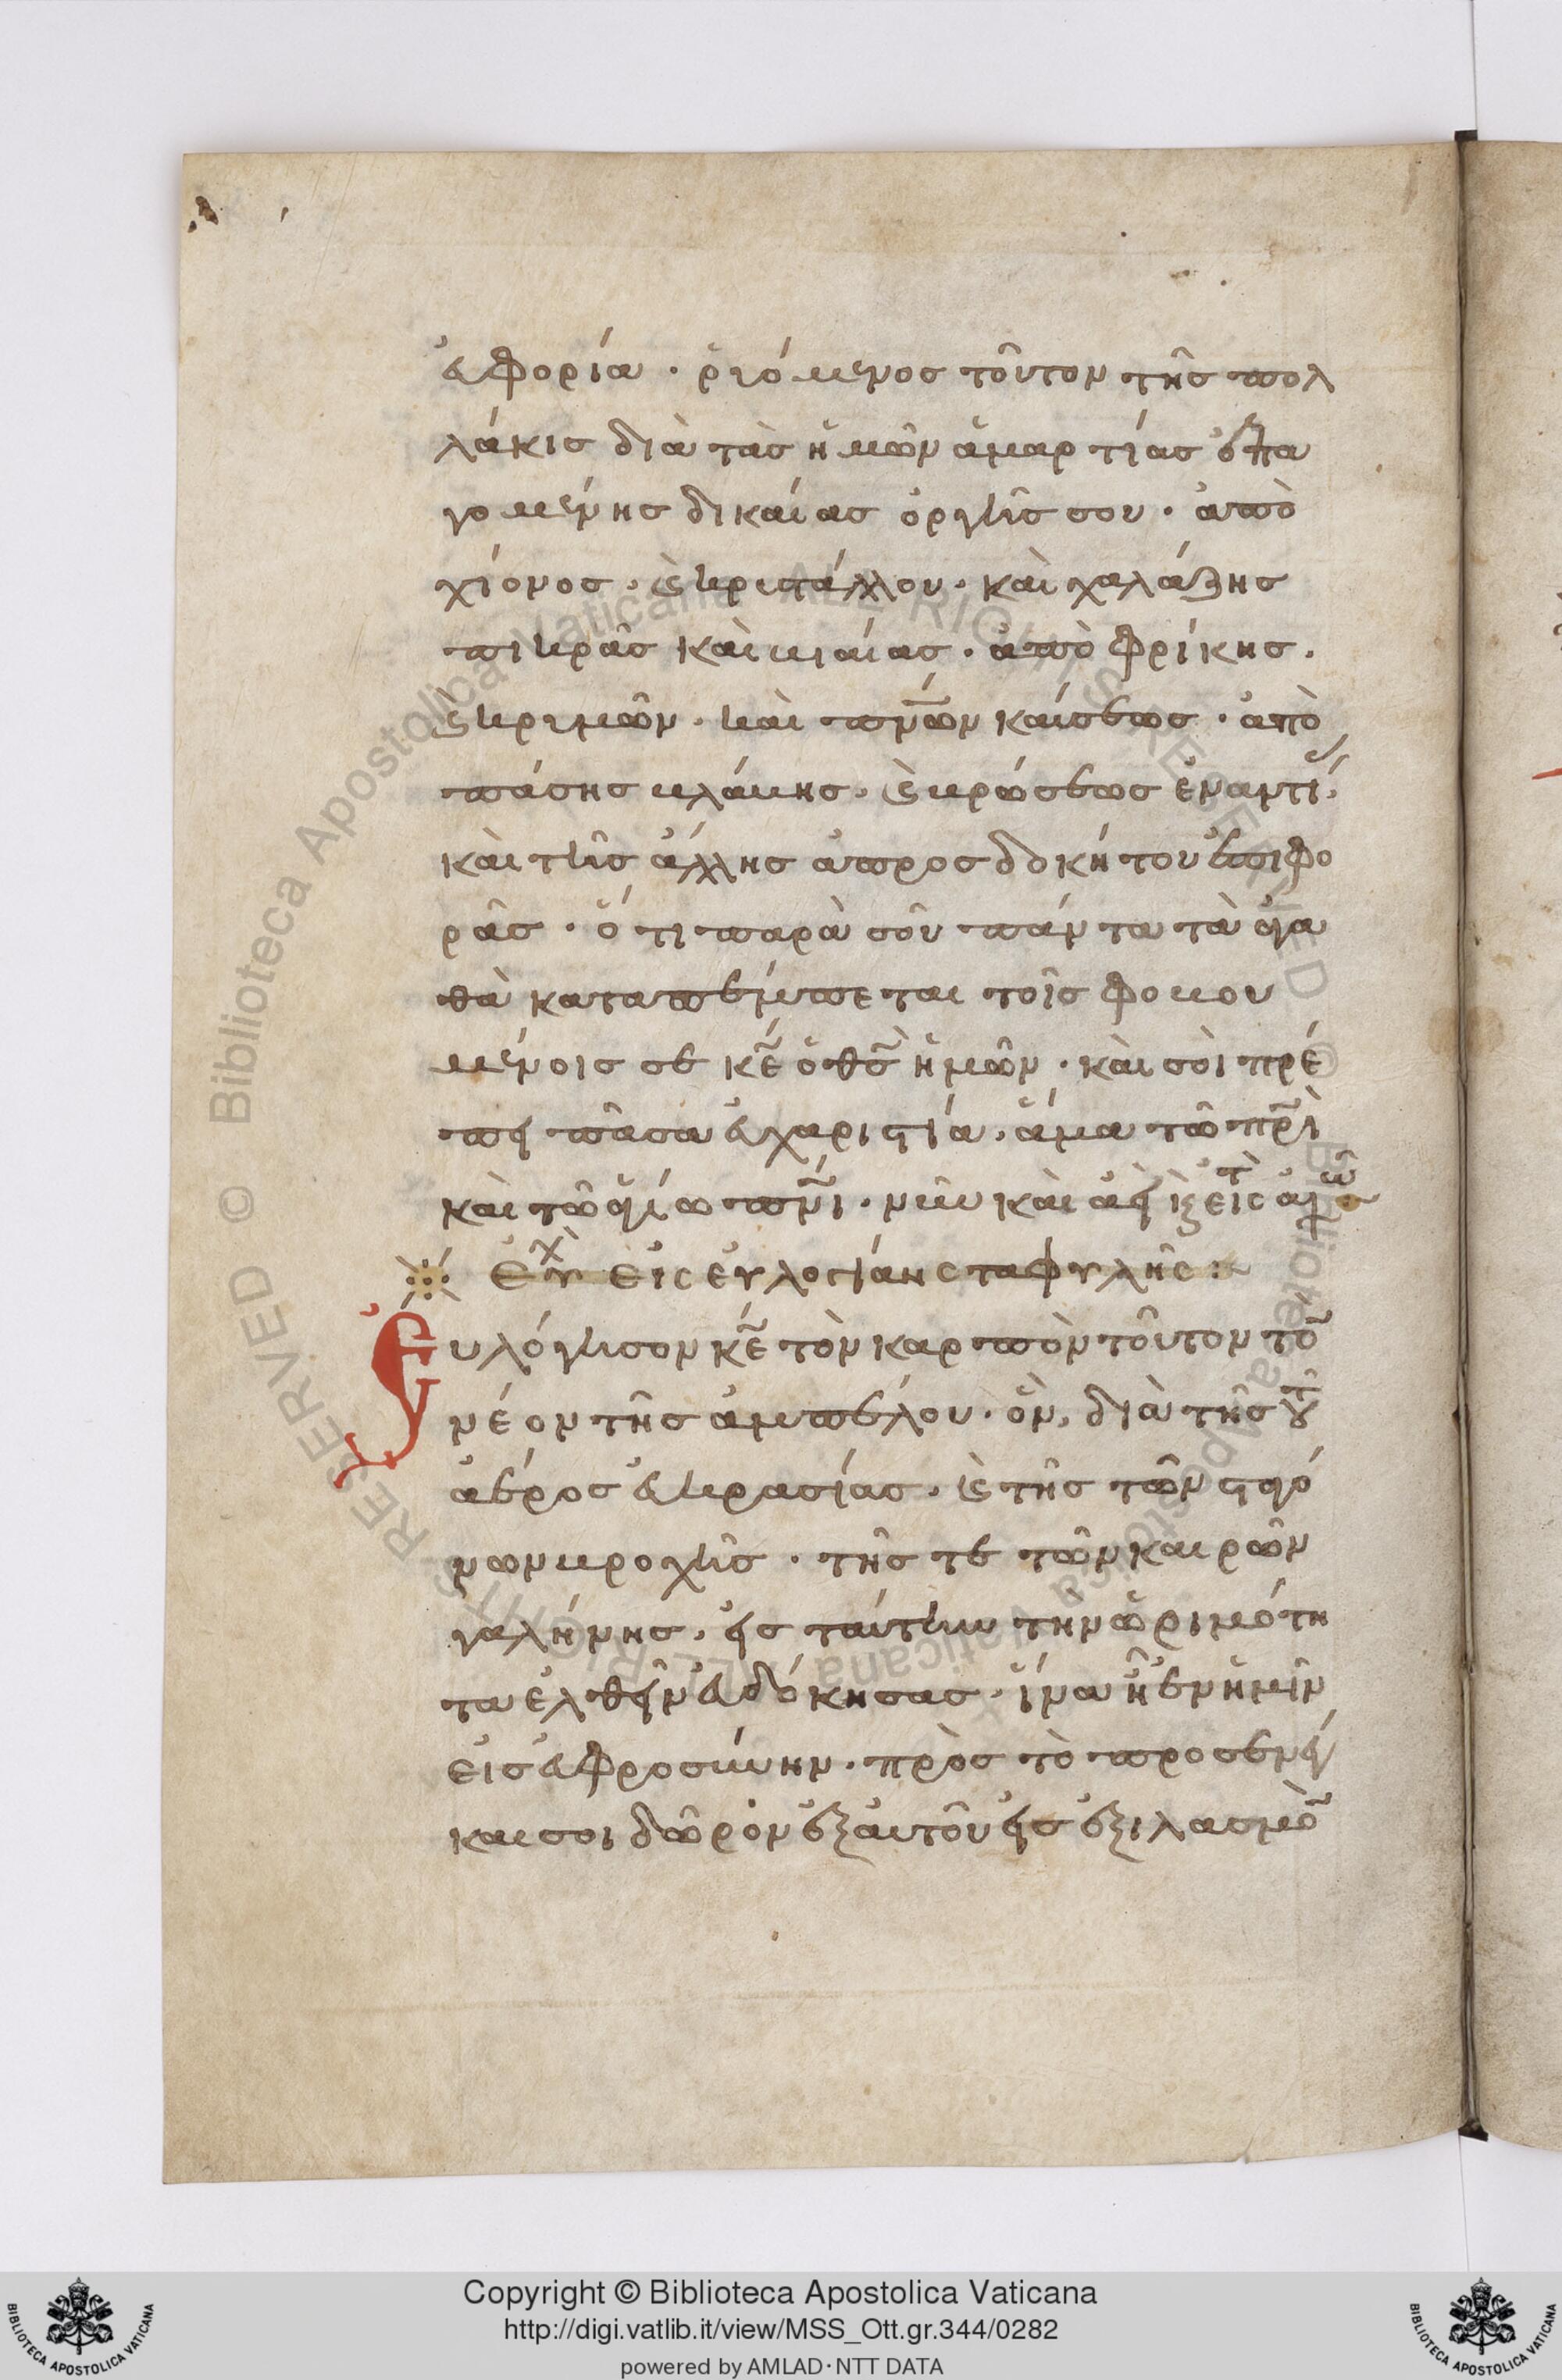 εὐφορία · ῥυόμενος τοῦτον τῆς πολ
λάκις διὰ τὰς ἡμῶν ἁμαρτίας ἐπα
γομένης δικαίας ὀργῆς σου · ἀπὸ
χιόνος · ϗ κρυστάλλου · καὶ χαλάζης
πικρᾶς καὶ βιαίας · ἀπὸ φρίκης ·
ϗ κρυμῶν · καὶ πνων καύσεως · ἀπὸ
πάσης βλάβης · ϗ βρώσεως ἐναντί ·
καὶ τῆς ἄλλης ἀπροσδοκήτου ἐπιφο
ρᾶς · ὅτι παρὰ σοῦ πάντα τὰ ἀγα
θὰ καταπέμπεται τοῖς φοβου
μένοις σε κε ὁ θς ἡμῶν · καὶ σοὶ πρέ
πει πᾶσα εὐχαριστία · ἅμα τῶ πρι
καὶ τῶ ἁγίω πνι · νῦν καὶ ἀεὶ ϗ εἰς τ αἰω
Εὐχ εἰς εὐλογίαν σταφυλῆς :
Εὐλόγησον κε τὸν καρπὸν τοῦτον το
νέον τῆς ἀμπέλου · ὃν, διὰ τῆς τοῦ
ἀέρος εὐκρασίας · ϗ τῆς τῶν σταγό
νων βροχῆς · τῆς τε τῶν καιρῶν
γαλήνης · εἰς ταύτην τὴν ὡριμότη
τα ἐλθεῖν εὐδόκησας · ἵνα ἦ ἐν ἡμῖν
εἰς εὐφροσύνην · πρὸς τὸ προσενέγ
και σοι δῶρον ἐξ αὐτοῦ εἰς ἐξιλασμο
Copyright © Biblioteca Apostolica Vaticana
http://digi.vatlib.it/view/MSS_Ott.gr.344/0282
powered by AMLAD·NTT DATA